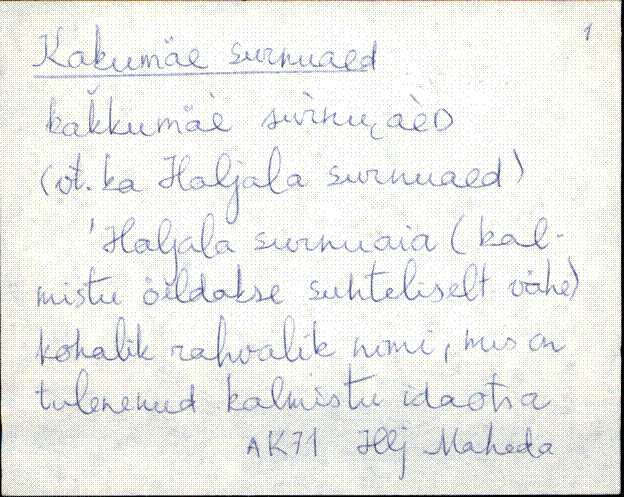 1
Kakumäe surnuaed
kak̆kumäè sùrnu,aèD
(vt. ka Haljala surnuaed)
'Haljala surnuaia (kal-
mistu öeldakse suhteliselt vähe)
kohalik rahvalik nimi, mis on
tulenenud kalmistu idaotsa
AK71 Hlj Maheda